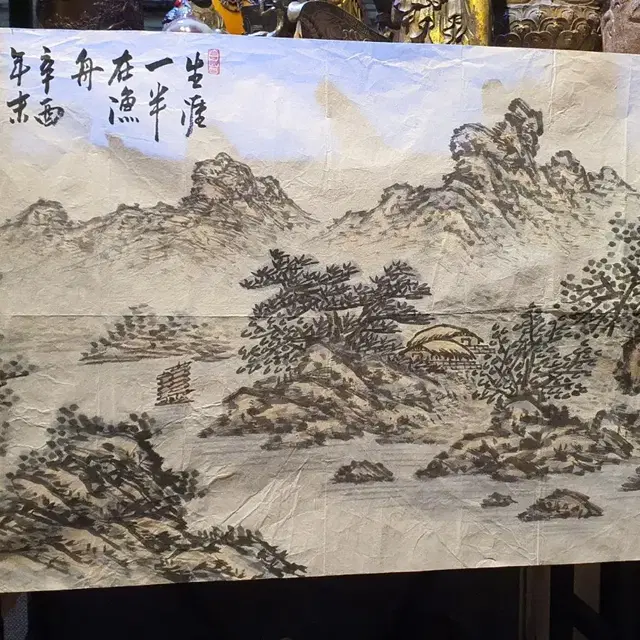 生涯
一半
在漁
舟
辛酉
年末